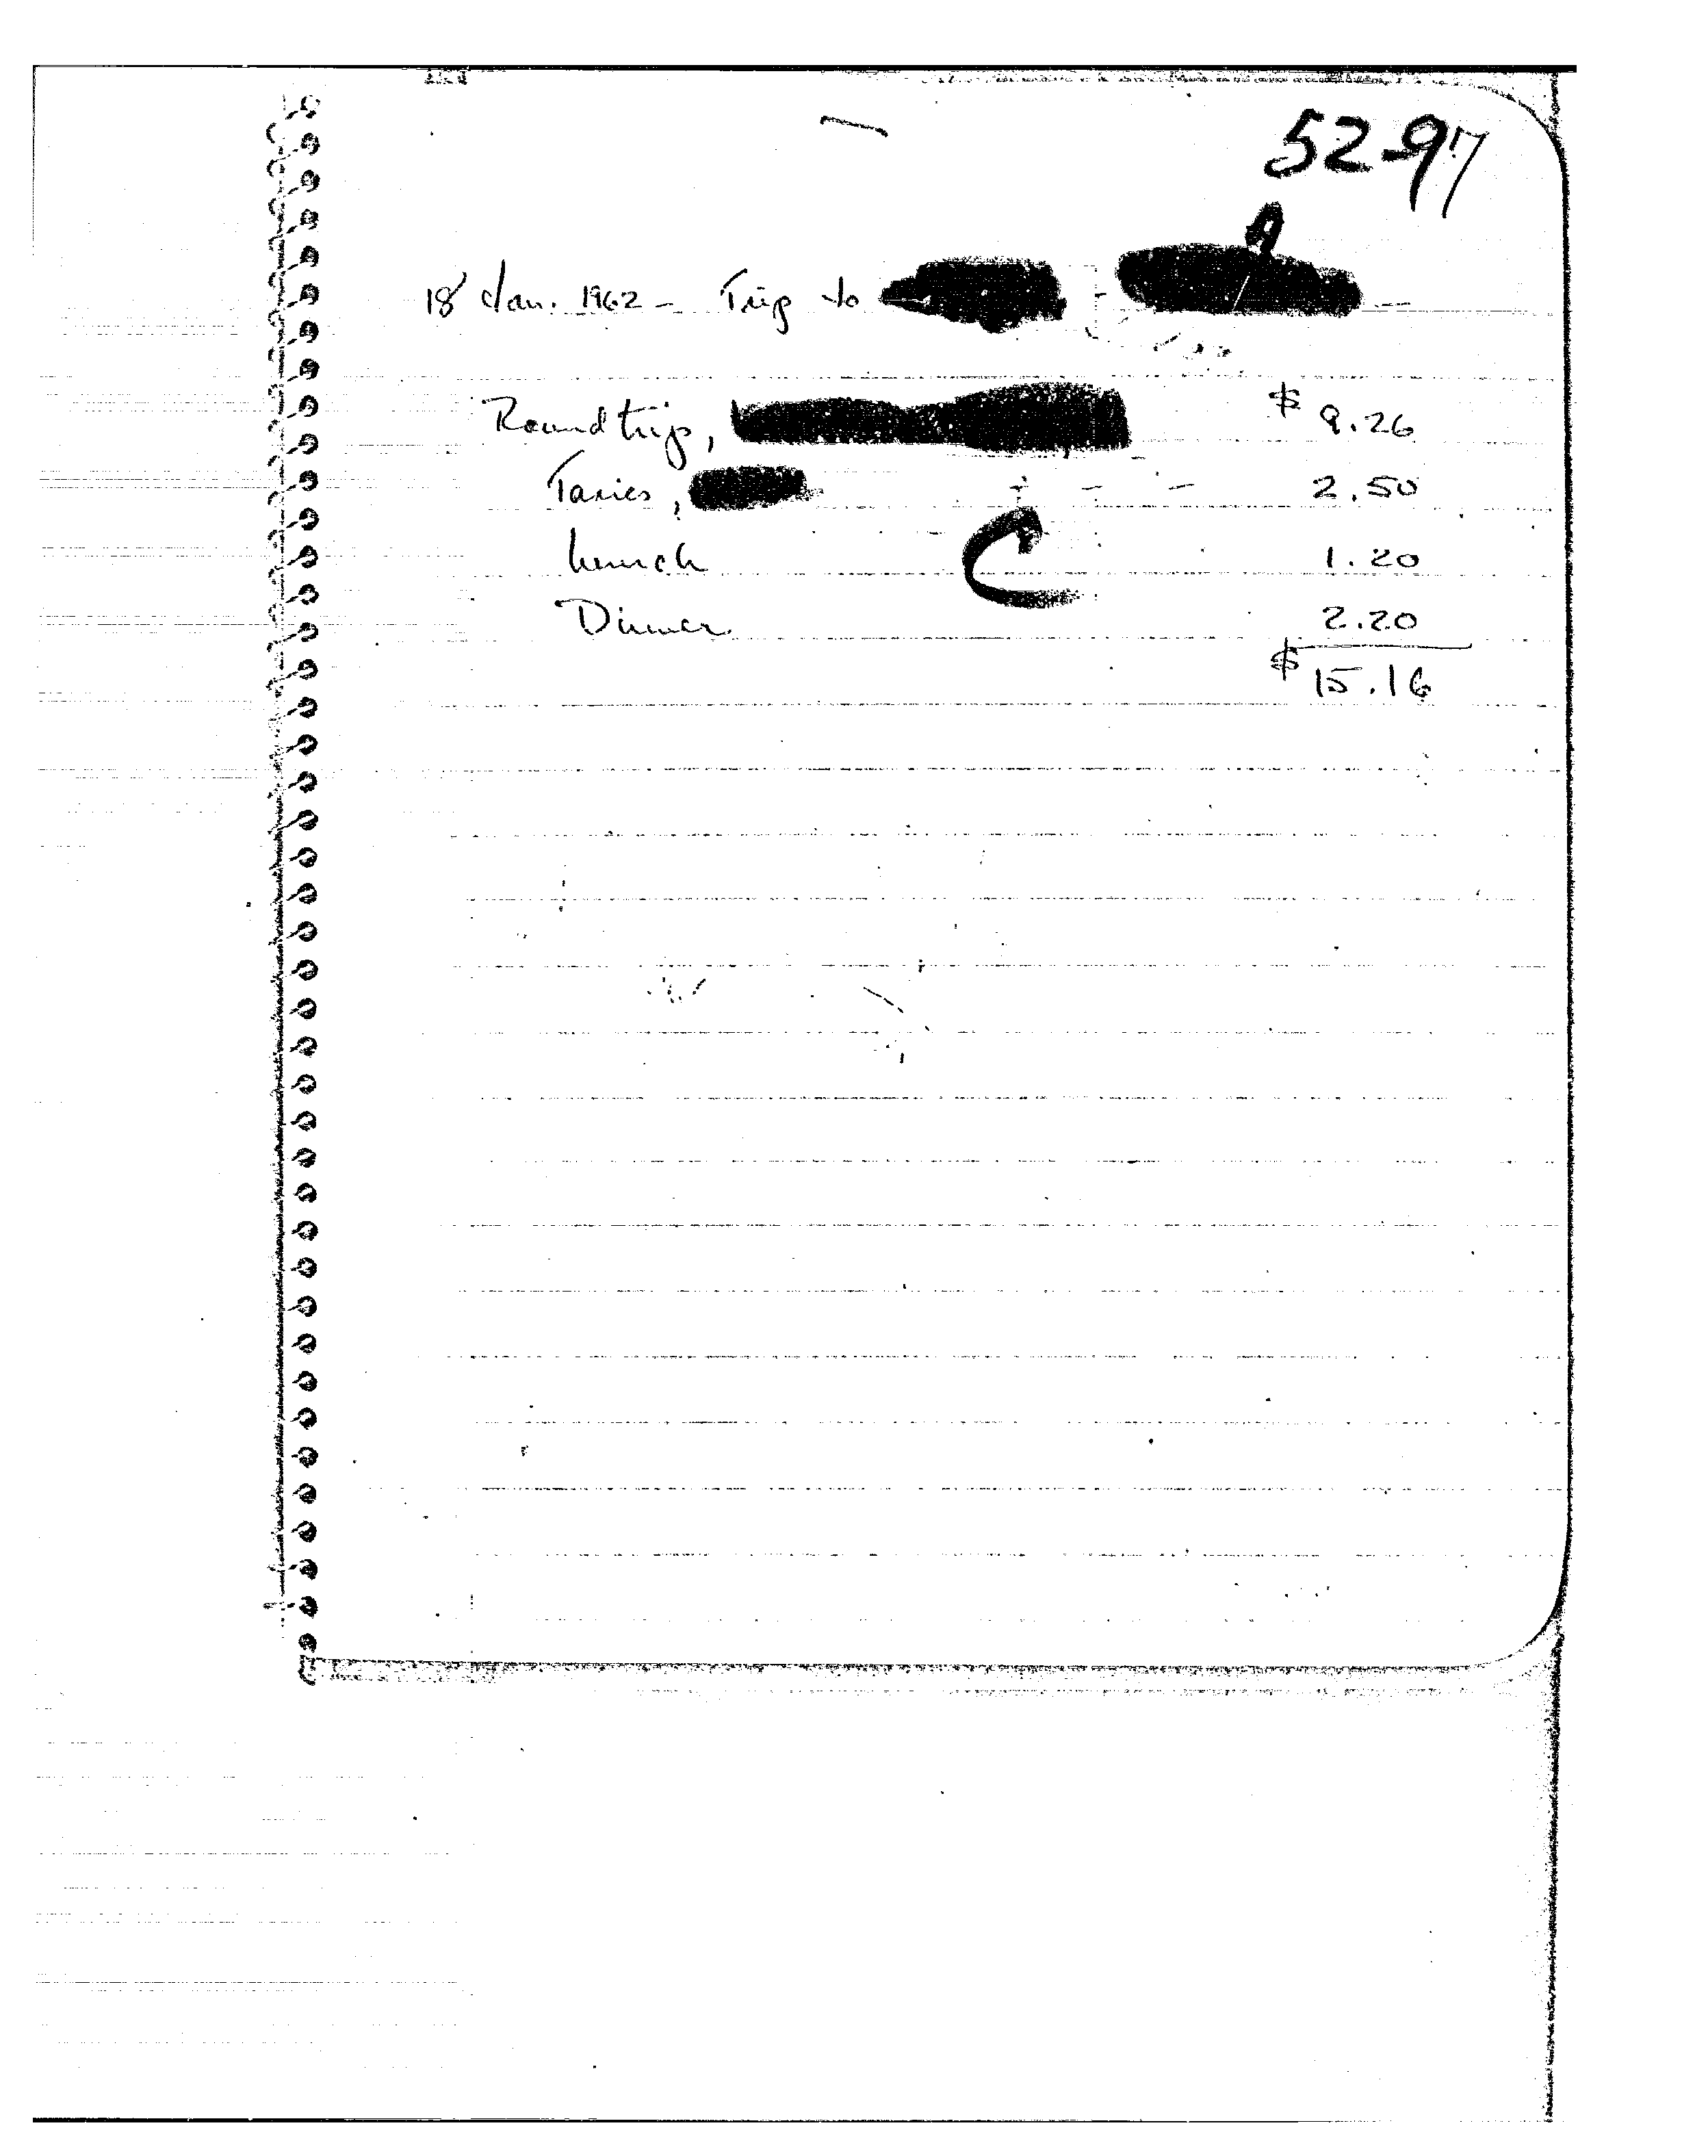 52-97
18 Jan. 1962 - Trip to
Round trip, $ 9.26
Taxies, 2.50
Lunch 1.20
Dinner 2.20
$ 15.16